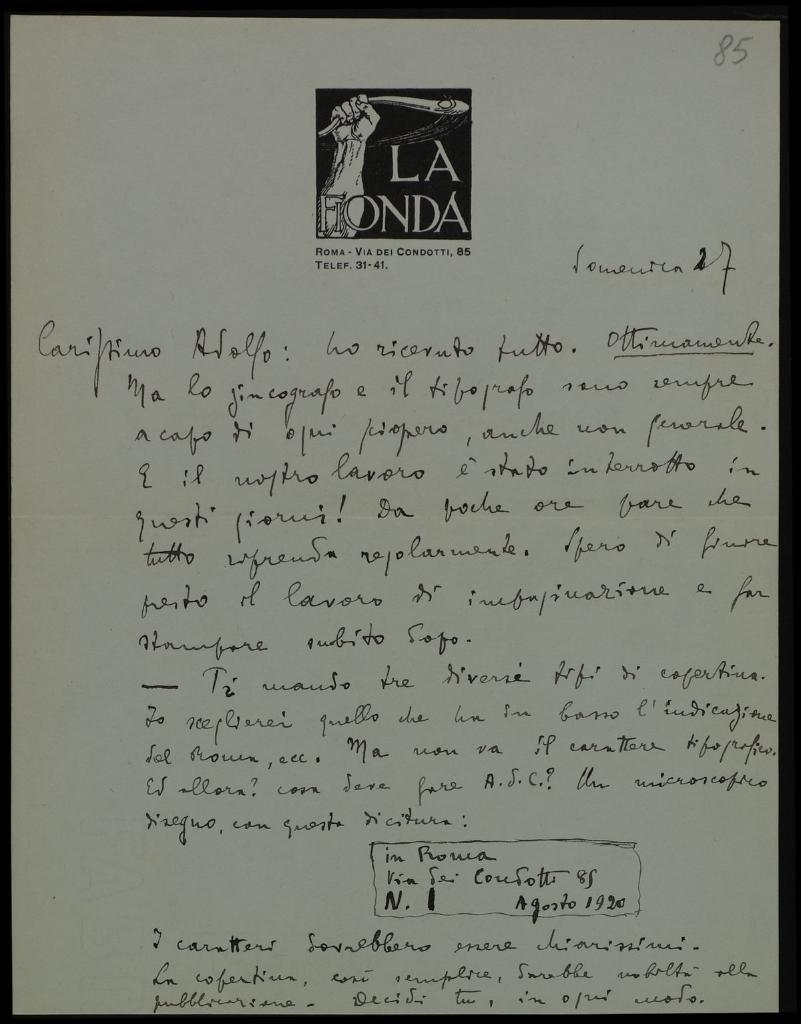 85
LA
FIONDA
ROMA - VIA DEI CONDOTTI, 85
TELEF. 31-41.
Domenica 27
Carissimo Adolfo: ho ricevuto tutto. Ottimamente.
Ma lo zincografo e il tipografo sono sempre
a capo di ogni sciopero, anche non generale.
E il nostro lavoro è stato interrotto in
questi giorni! Da poche ore pare che
tutto riprenda regolarmente. Spero di finire
presto il lavoro di impaginazione e far
stampare subito dopo.
— Ti mando tre diversi tipi di copertina.
Io sceglierei quello che ha in basso l'indicazione
del Roma, ecc. Ma non va il carattere tipografico.
Ed allora? cosa deve fare A.d.C.? Un microscopico
disegno, con questa dicitura:
in Roma
Via dei Condotti 85
N. 1 Agosto 1920
I caratteri dovrebbero essere chiarissimi.
La copertina, così semplice, darebbe nobiltà alla
pubblicazione. Decidi tu, in ogni modo.